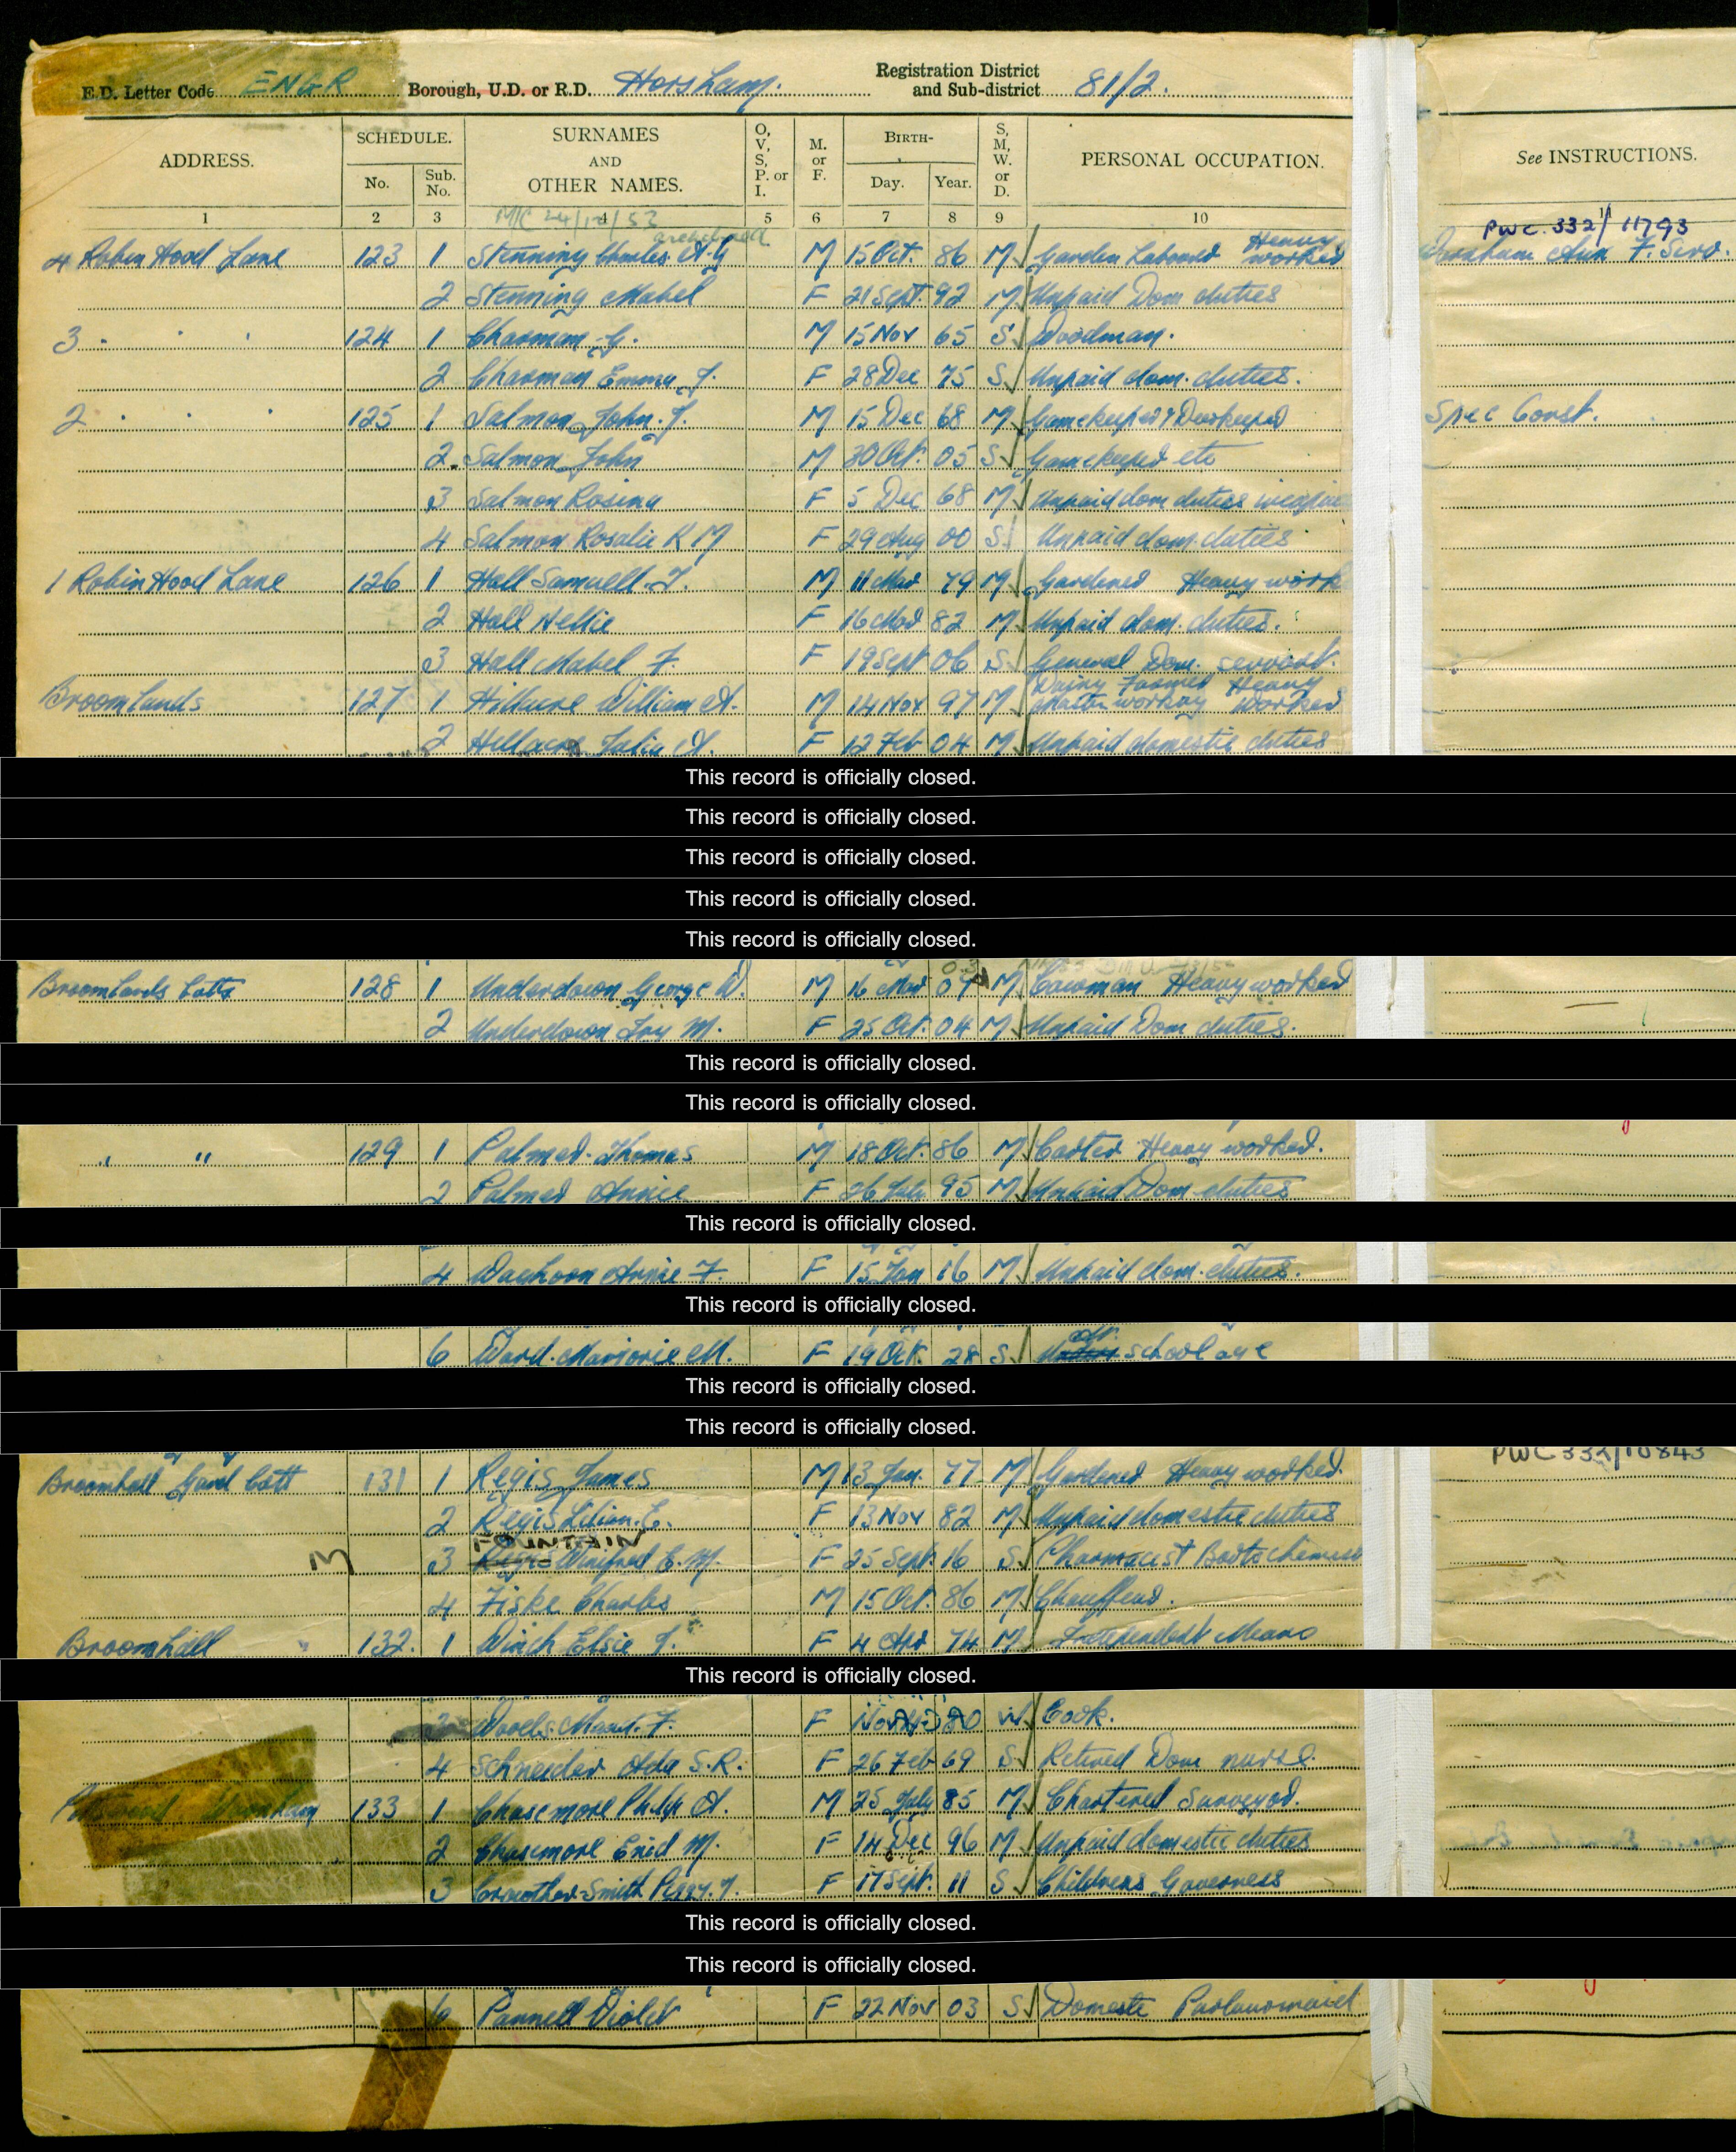 E.D. Letter Code ENGR Borough, U.D. or R.D. Horsham. Registration District and Sub-district 81/2.
ADDRESS. SCHEDULE. No. Sub. No. SURNAMES AND OTHER NAMES. O, V, S, P. or I. M. or F. BIRTH- Day. Year. S, M, W. or D. PERSONAL OCCUPATION. See INSTRUCTIONS.
1 2 3 4 5 6 7 8 9 10 11
M/C 24/12/53 PWC 332/11793
4 Robin Hood Lane 123 1 Stenning Charles A.G M 15 Oct. 86 M Garden Labourer Heavy worker Aux F. Serv.
2 Stenning Mabel F 21 Sept. 92 M Unpaid Dom duties
3 " " " 124 1 Charman G. M 15 Nov 65 S Woodman.
2 Charman Emma J. F 28 Dec 75 S Unpaid dom. duties.
2 " " " 125 1 Salmon John J. M 15 Dec 68 M Gamekeeper & Deerkeeper Spec Const.
2 Salmon John M 30 Oct. 05 S Gamekeeper etc
3 Salmon Rosina F 5 Dec 68 M Unpaid dom duties
4 Salmon Rosalie K M F 29 Aug 00 S Unpaid dom. duties
1 Robin Hood Lane 126 1 Hall Samuell. J. M 11 Mar 79 M Gardener Heavy work
2 Hall Nellie F 16 Mar 82 M Unpaid dom. duties.
3 Hall Mabel F. F 19 Sept 06 S General Dom. servant.
Broomlands 127 1 William A. M 14 Nov 97 M Dairy Farmer Heavy worker
2 Hillacre Julia A. F 12 Feb 04 M Unpaid domestic duties
This record is officially closed.
This record is officially closed.
This record is officially closed.
This record is officially closed.
This record is officially closed.
Broomlands Cotts 128 1 Underdown George W. M 16 Mar M Cowman Heavy worker
2 Underdown Ivy M. F 25 Oct. 04 M Unpaid Dom duties.
This record is officially closed.
This record is officially closed.
" " 129 1 Palmer Thomas M 18 Oct. 86 M Carter Heavy worker.
2 Palmer Annie F 26 July 95 M Unpaid Dom duties
This record is officially closed.
4 Annie F. F 15 Jan 16 M Unpaid dom. duties.
This record is officially closed.
6 Ward Marjorie M. F 19 Oct. 28 S school age
This record is officially closed.
This record is officially closed.
PWC 332/10843
Broomhall Gard Cott 131 1 Regis James M 13 Jan. 77 M Gardener Heavy worker.
2 Regis Lilian. E. F 13 Nov 82 M Unpaid domestic duties
FOUNTAIN
M 3 Regis Winifred E. M. F 25 Sept. 16 S Pharmacist Boots chemists
4 Fiske Charles M 15 Oct. 86 M Chauffeur.
Broomhall 132. 1 Winch Elsie J. F 4 Apr 74 M Independent Means
This record is officially closed.
3 Maud. F. F Nov 80 W Cook.
4 Schneider Ada S.R. F 26 Feb 69 S Retired Dom nurse.
133 1 Chasemore Philip A. M 25 July 85 M Chartered Surveyor.
2 Chasemore Enid M. F 14 Dec 96 M Unpaid domestic duties
3 Crowther-Smith Peggy. J. F 17 Sept. 11 S Childrens Governess
This record is officially closed.
This record is officially closed.
6 Pannell Violet F 22 Nov 03 S Domestic Parlourmaid